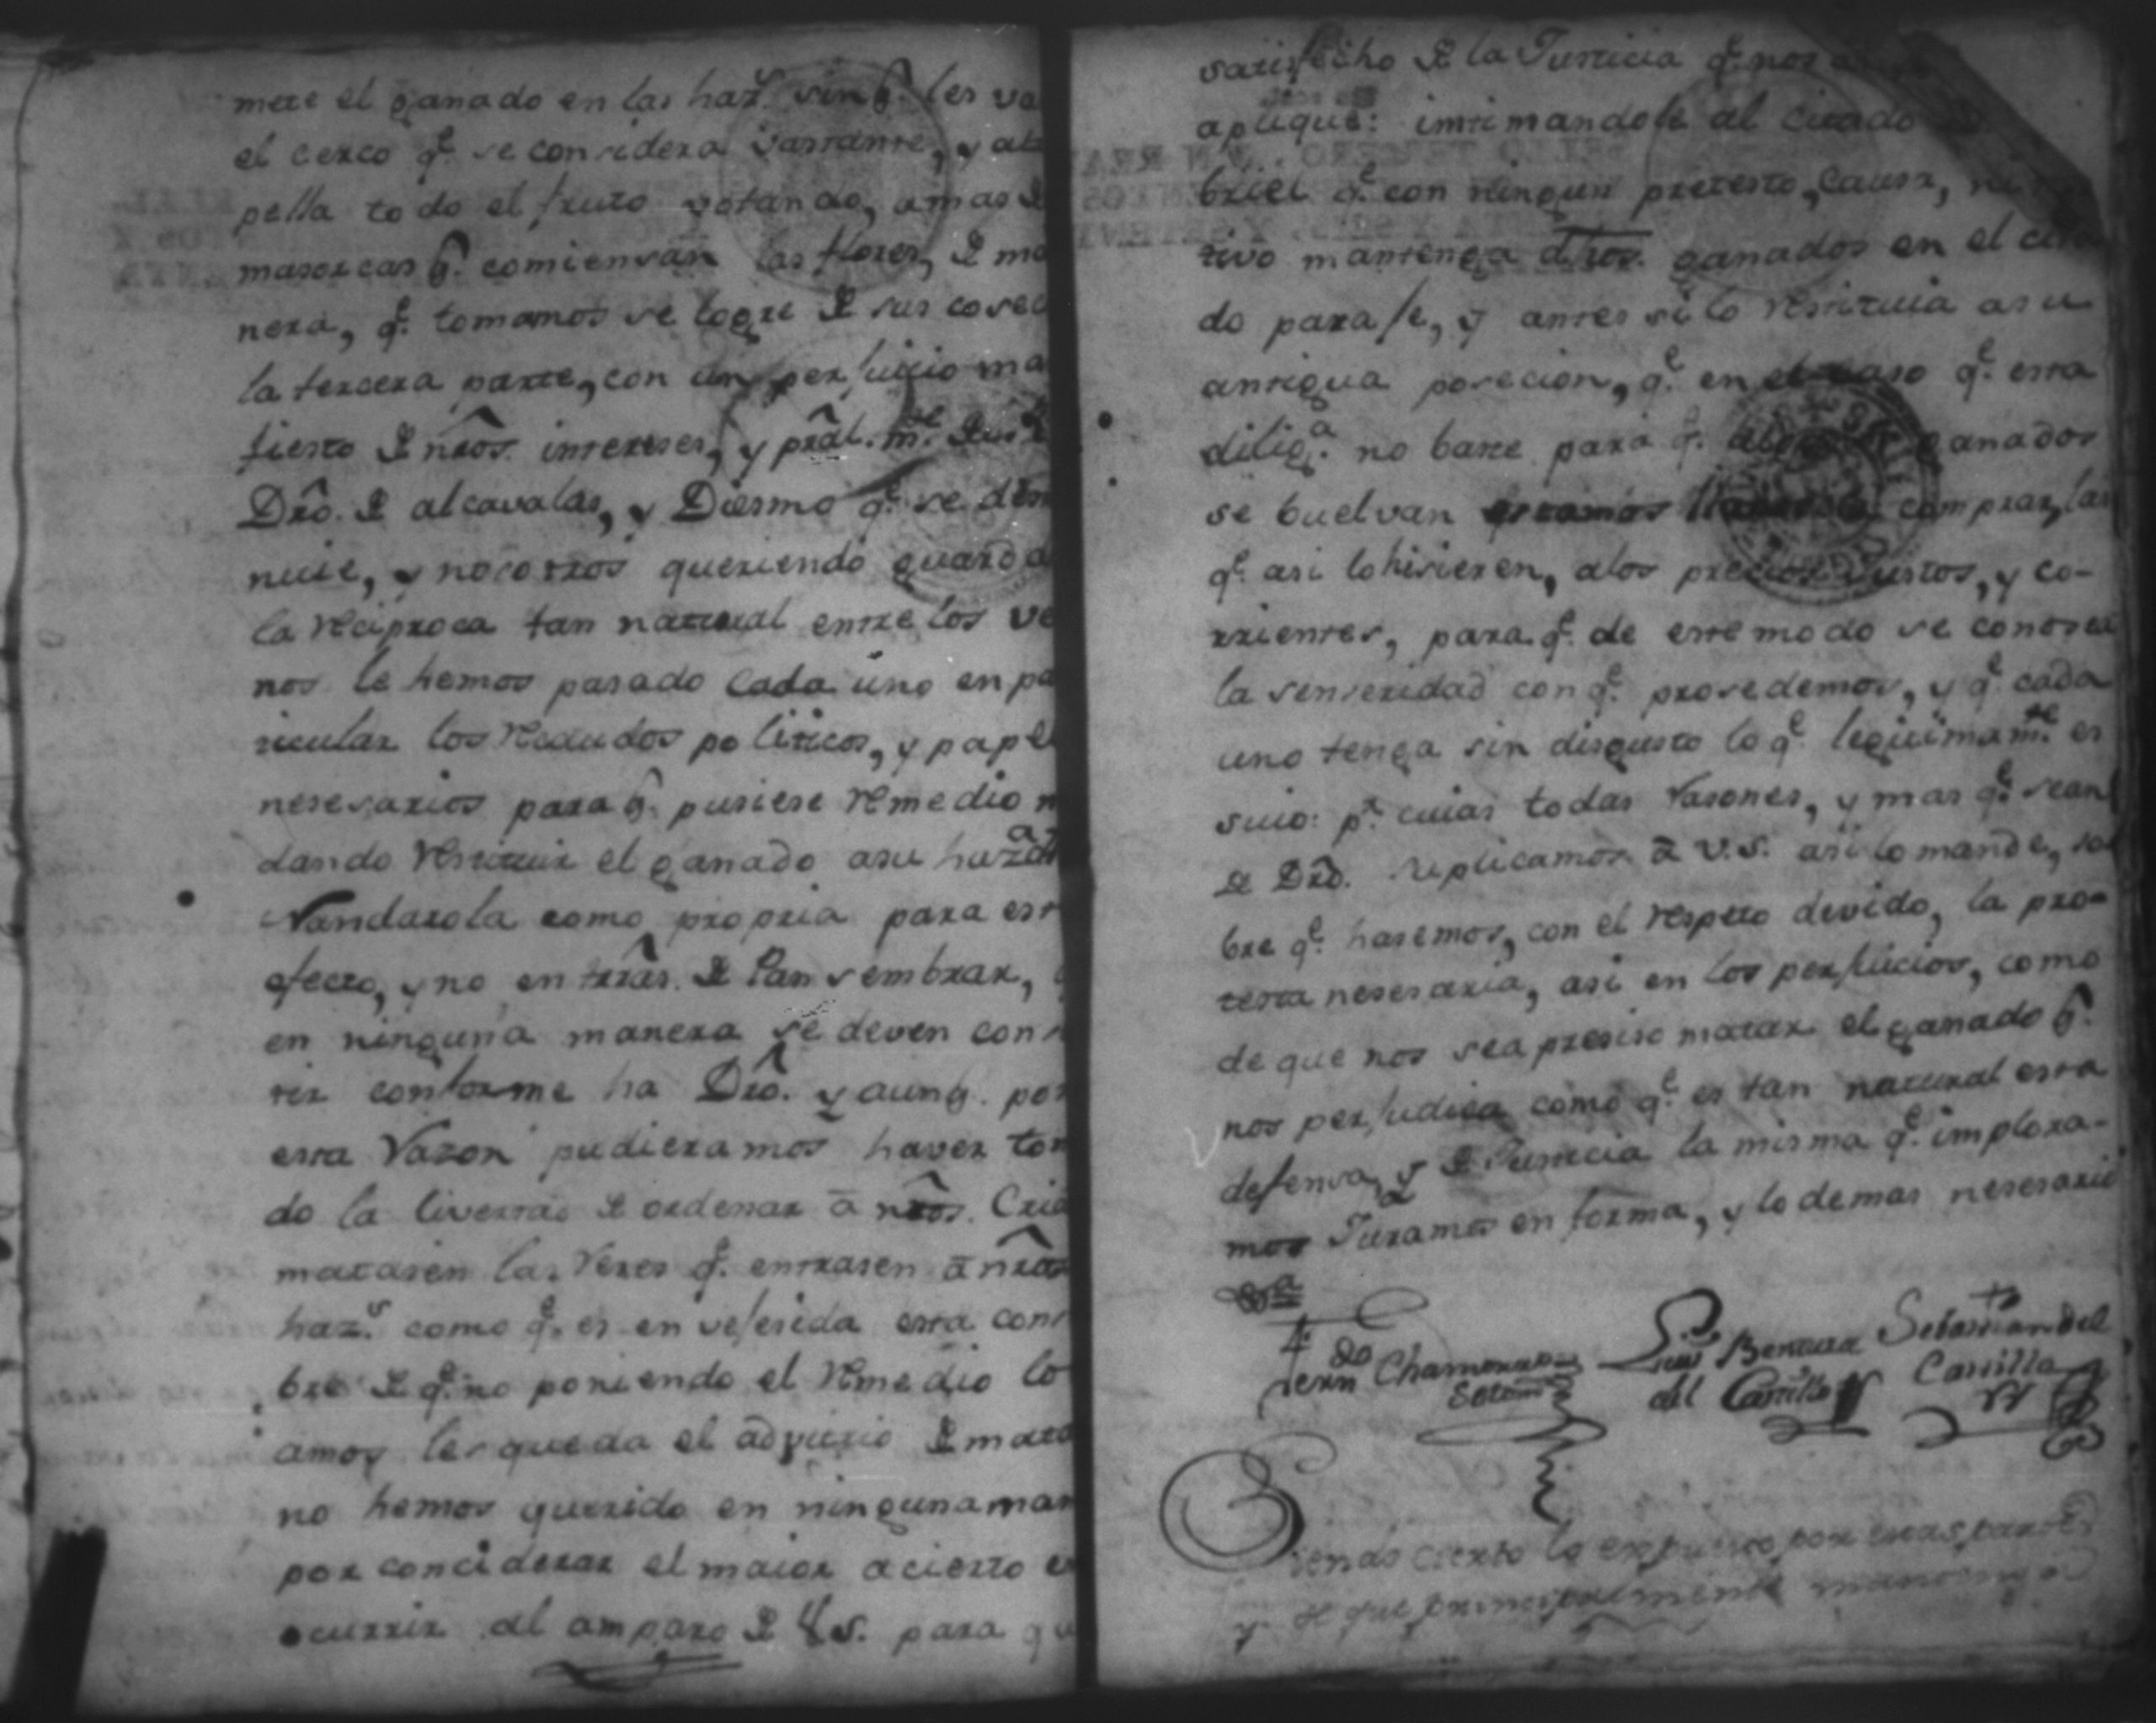 mete el ganado en las haz.s sin q.e les va
el cerco q.e se considera vastante, y at
pella todo el fruto votando, amas de
masorcas q.e comiensan las flores, de ma
nera, q.e tomamos se logre de sus cosec
la tercera parte, con un perjuicio ma
fiesto de nr̃os. intereses, y prãl.m.te
Dr̃o. de alcavalas, y Diesmo q.e se dism
nuie, y nosotros queriendo guarda
la reciproca tan natural entre los ve
nos le hemos pasado cada uno en pa
ricular los recaudos politicos, y pape
nesesarios para q.e pusiese remedio
dando restituir el ganado asu haz.da
Nandarola como propria para est
efecto, y no en trr̃as. de Pan sembrar,
en ninguna manera se deven con
tir conforme ha Dr̃o. y aunq. por
esta Vazon pudieramos haver tom
do la livertad de ordenar â nr̃os. Cria
matasen las reses q.e entrasen â nr̃as
haz.s como q.e es en veferida esta cons
bre de q.e no poniendo el remedio lo
amos les queda el advitrio de mata
no hemos querido en ninguna man
por conciderar el maior acierto
ocurrir al amparo de V.S. para qu
satisfecho de la Justicia q.e nos
aplique: intimandole al citado
briel q.e con ningun pretesto, causa, ni
tivo mantenga dh̃os. ganados en el cita
do paraje, y antes si lo restituia asu
antigua posecion, q.e en el caso q.e esta
dilig.a no baste para q.e ganados
se buelvan comprar, las
q.e asi lo hisieren, alos precios justos, y co-
rrientes, para q.e de este modo se conosca
la senseridad con q.e prosedemos, y q.e cada
uno tenga sin disgusto lo q.e legitimam.te es
suio: p.r cuias todas Vasones, y mas q.e sean
de Dr̃o. suplicamos â V.S. asi lo mande, so
bre q.e hasemos, con el respeto devido, la pro-
testa nesesaria, asi en los perjuicios, como
de que nos sea presiso matar el ganado q.e
nos perjudica como q.e es tan natural esta
defensa, y de Justicia la misma q.e implora-
mos Juramos en forma, y lo demas nesesario
&.a
Fern.do Chamorro Luis Bentura Sebastian del
Sotom.r del Castillo Castillo
Siendo cierto lo expuesto por estas partes
y de que principalmente